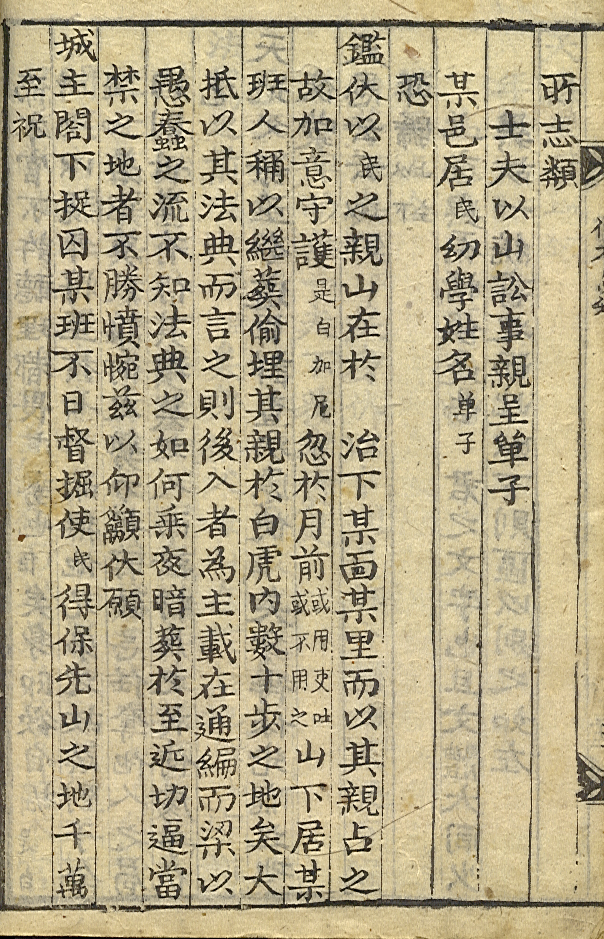 所志類
士夫以山訟事親呈單子
某邑居民幼學姓名單子
恐
鑑伏以民之親山在於 治下某面某里而以其親占之
故加意守護是白加尼忽於月前或用吏吐或不用之山下居某
班人稱以繼葬偷埋其親於白虎內數十步之地矣大
抵以其法典而言之則後入者為主載在通編而梁以
愚蠢之流不知法典之如何乘夜暗葬於至近切逼當
禁之地者不勝憤惋玆以仰籲伏願
城主閤下捉囚某班不日督掘使民得保先山之地千萬
至祝